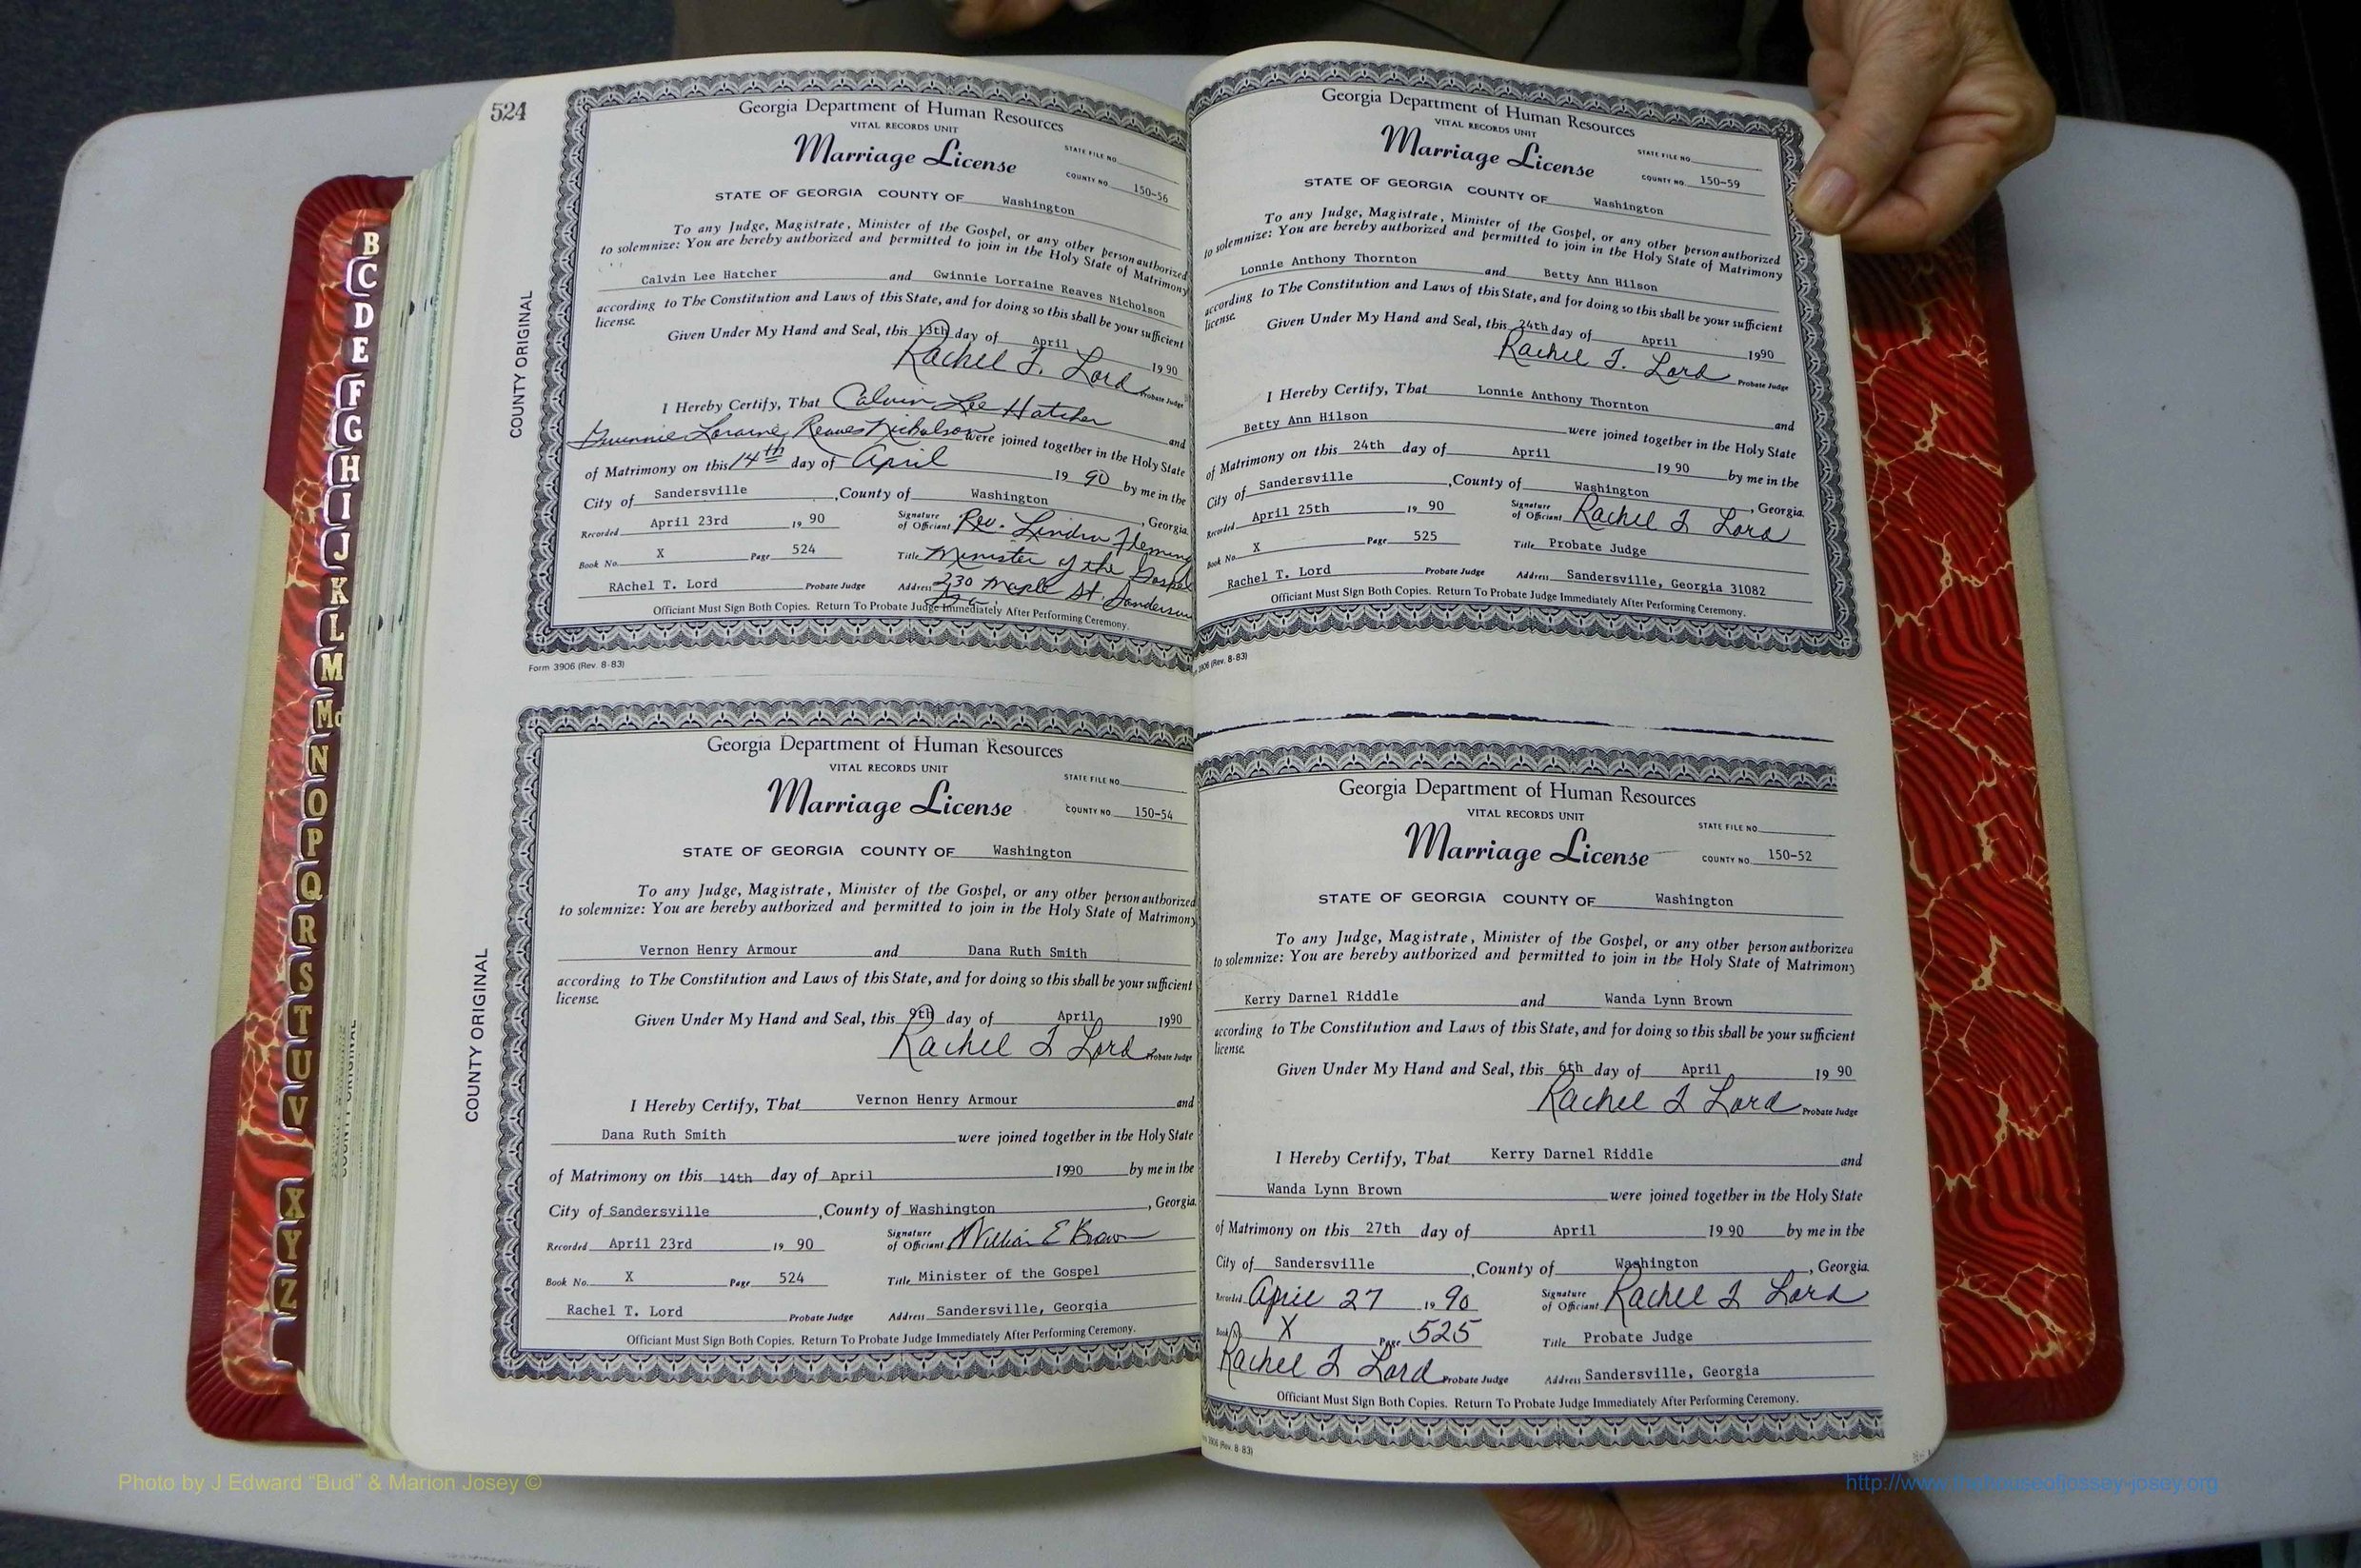 524
B
C
D
E
F
G
H
I
J
K
L
M
Mc
N
O
P
Q
R
S
T
U
V
X
Y
Z
COUNTY ORIGINAL
Georgia Department of Human Resources
VITAL RECORDS UNIT
Marriage License
STATE FILE NO.
COUNTY NO. 150-56
STATE OF GEORGIA COUNTY OF Washington
To any Judge, Magistrate, Minister of the Gospel, or any other person authorized
to solemnize: You are hereby authorized and permitted to join in the Holy State of Matrimony
Calvin Lee Hatcher and Gwinnie Lorraine Reaves Nicholson
according to The Constitution and Laws of this State, and for doing so this shall be your sufficient
license.
Given Under My Hand and Seal, this 13th day of April 1990
Rachel T. Lord Probate Judge
I Hereby Certify, That Calvin Lee Hatcher and
Gwinnie Loraine Reaves Nicholson were joined together in the Holy State
of Matrimony on this 14th day of April 1990 by me in the
City of Sandersville, County of Washington, Georgia.
Recorded April 23rd 1990 Signature of Officiant Rev. Lindra Fleming
Book No. X Page 524 Title Minister of the Gospel
RAchel T. Lord Probate Judge Address 230 Maple St.
Officiant Must Sign Both Copies. Return To Probate Judge Immediately After Performing Ceremony.
Form 3906 (Rev. 8-83)
COUNTY ORIGINAL
Georgia Department of Human Resources
VITAL RECORDS UNIT
Marriage License
STATE FILE NO.
COUNTY NO. 150-54
STATE OF GEORGIA COUNTY OF Washington
To any Judge, Magistrate, Minister of the Gospel, or any other person authorized
to solemnize: You are hereby authorized and permitted to join in the Holy State of Matrimony
Vernon Henry Armour and Dana Ruth Smith
according to The Constitution and Laws of this State, and for doing so this shall be your sufficient
license.
Given Under My Hand and Seal, this 9th day of April 1990
Rachel T Lord Probate Judge
I Hereby Certify, That Vernon Henry Armour and
Dana Ruth Smith were joined together in the Holy State
of Matrimony on this 14th day of April 1990 by me in the
City of Sandersville, County of Washington, Georgia.
Recorded April 23rd 1990 Signature of Officiant William E Brown
Book No. X Page 524 Title Minister of the Gospel
Rachel T. Lord Probate Judge Address Sandersville, Georgia
Officiant Must Sign Both Copies. Return To Probate Judge Immediately After Performing Ceremony.
Georgia Department of Human Resources
VITAL RECORDS UNIT
Marriage License
STATE FILE NO.
COUNTY NO. 150-59
STATE OF GEORGIA COUNTY OF Washington
To any Judge, Magistrate, Minister of the Gospel, or any other person authorized
to solemnize: You are hereby authorized and permitted to join in the Holy State of Matrimony
Lonnie Anthony Thornton and Betty Ann Hilson
according to The Constitution and Laws of this State, and for doing so this shall be your sufficient
license.
Given Under My Hand and Seal, this 24th day of April 1990
Rachel T. Lord Probate Judge
I Hereby Certify, That Lonnie Anthony Thornton and
Betty Ann Hilson were joined together in the Holy State
of Matrimony on this 24th day of April 1990 by me in the
City of Sandersville, County of Washington, Georgia.
Recorded April 25th 1990 Signature of Officiant Rachel T Lord
Book No. X Page 525 Title Probate Judge
Rachel T. Lord Probate Judge Address Sandersville, Georgia 31082
Officiant Must Sign Both Copies. Return To Probate Judge Immediately After Performing Ceremony.
3906 (Rev. 8-83)
Georgia Department of Human Resources
VITAL RECORDS UNIT
Marriage License
STATE FILE NO.
COUNTY NO. 150-52
STATE OF GEORGIA COUNTY OF Washington
To any Judge, Magistrate, Minister of the Gospel, or any other person authorized
to solemnize: You are hereby authorized and permitted to join in the Holy State of Matrimony
Kerry Darnel Riddle and Wanda Lynn Brown
according to The Constitution and Laws of this State, and for doing so this shall be your sufficient
license.
Given Under My Hand and Seal, this 6th day of April 1990
Rachel T Lord Probate Judge
I Hereby Certify, That Kerry Darnel Riddle and
Wanda Lynn Brown were joined together in the Holy State
of Matrimony on this 27th day of April 1990 by me in the
City of Sandersville, County of Washington, Georgia.
Recorded April 27 1990 Signature of Officiant Rachel T Lord
Book No. X Page 525 Title Probate Judge
Rachel T Lord Probate Judge Address Sandersville, Georgia
Officiant Must Sign Both Copies. Return To Probate Judge Immediately After Performing Ceremony.
3906 (Rev. 8-83)
Photo by J Edward “Bud” & Marion Josey ©
http://www.thehouseofjossey-josey.org